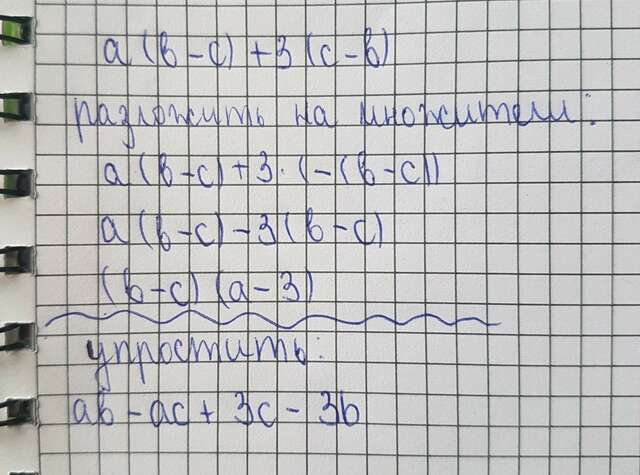 a(b-c)+3(c-b)
разложить на множители:
a(b-c)+3·(-(b-c))
a(b-c)-3(b-c)
(b-c)(a-3)
упростить:
ab-ac+3c-3b